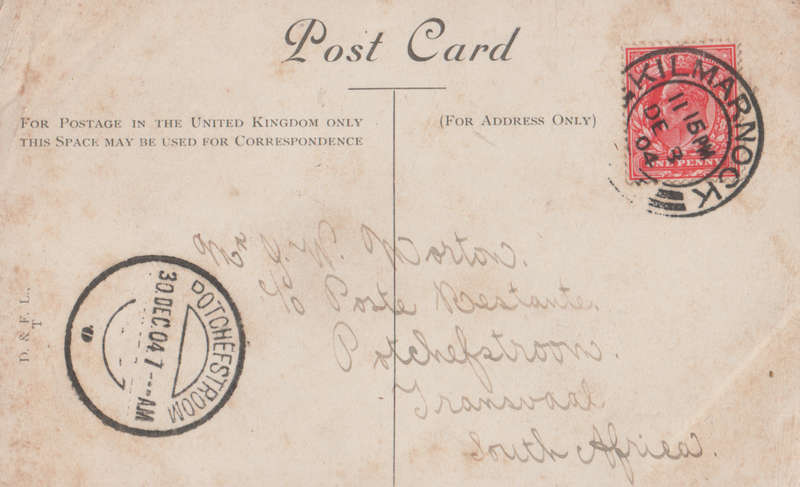 Post Card
FOR POSTAGE IN THE UNITED KINGDOM ONLY
THIS SPACE MAY BE USED FOR CORRESPONDENCE
(FOR ADDRESS ONLY)
KILMARNOCK
11 15 PM
DE
04
ONE PENNY
Mr J. W. Morton.
c/o Poste Restante.
Potchefstroom.
Transvaal
South Africa.
POTCHEFSTROOM
30.DEC.04 7---AM
D. & F. L.,
T